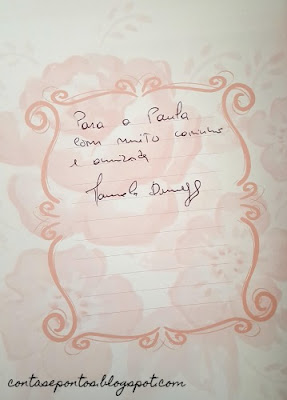 Para a Paula
com muito carinho
e amizade
contasepontos.blogspot.com